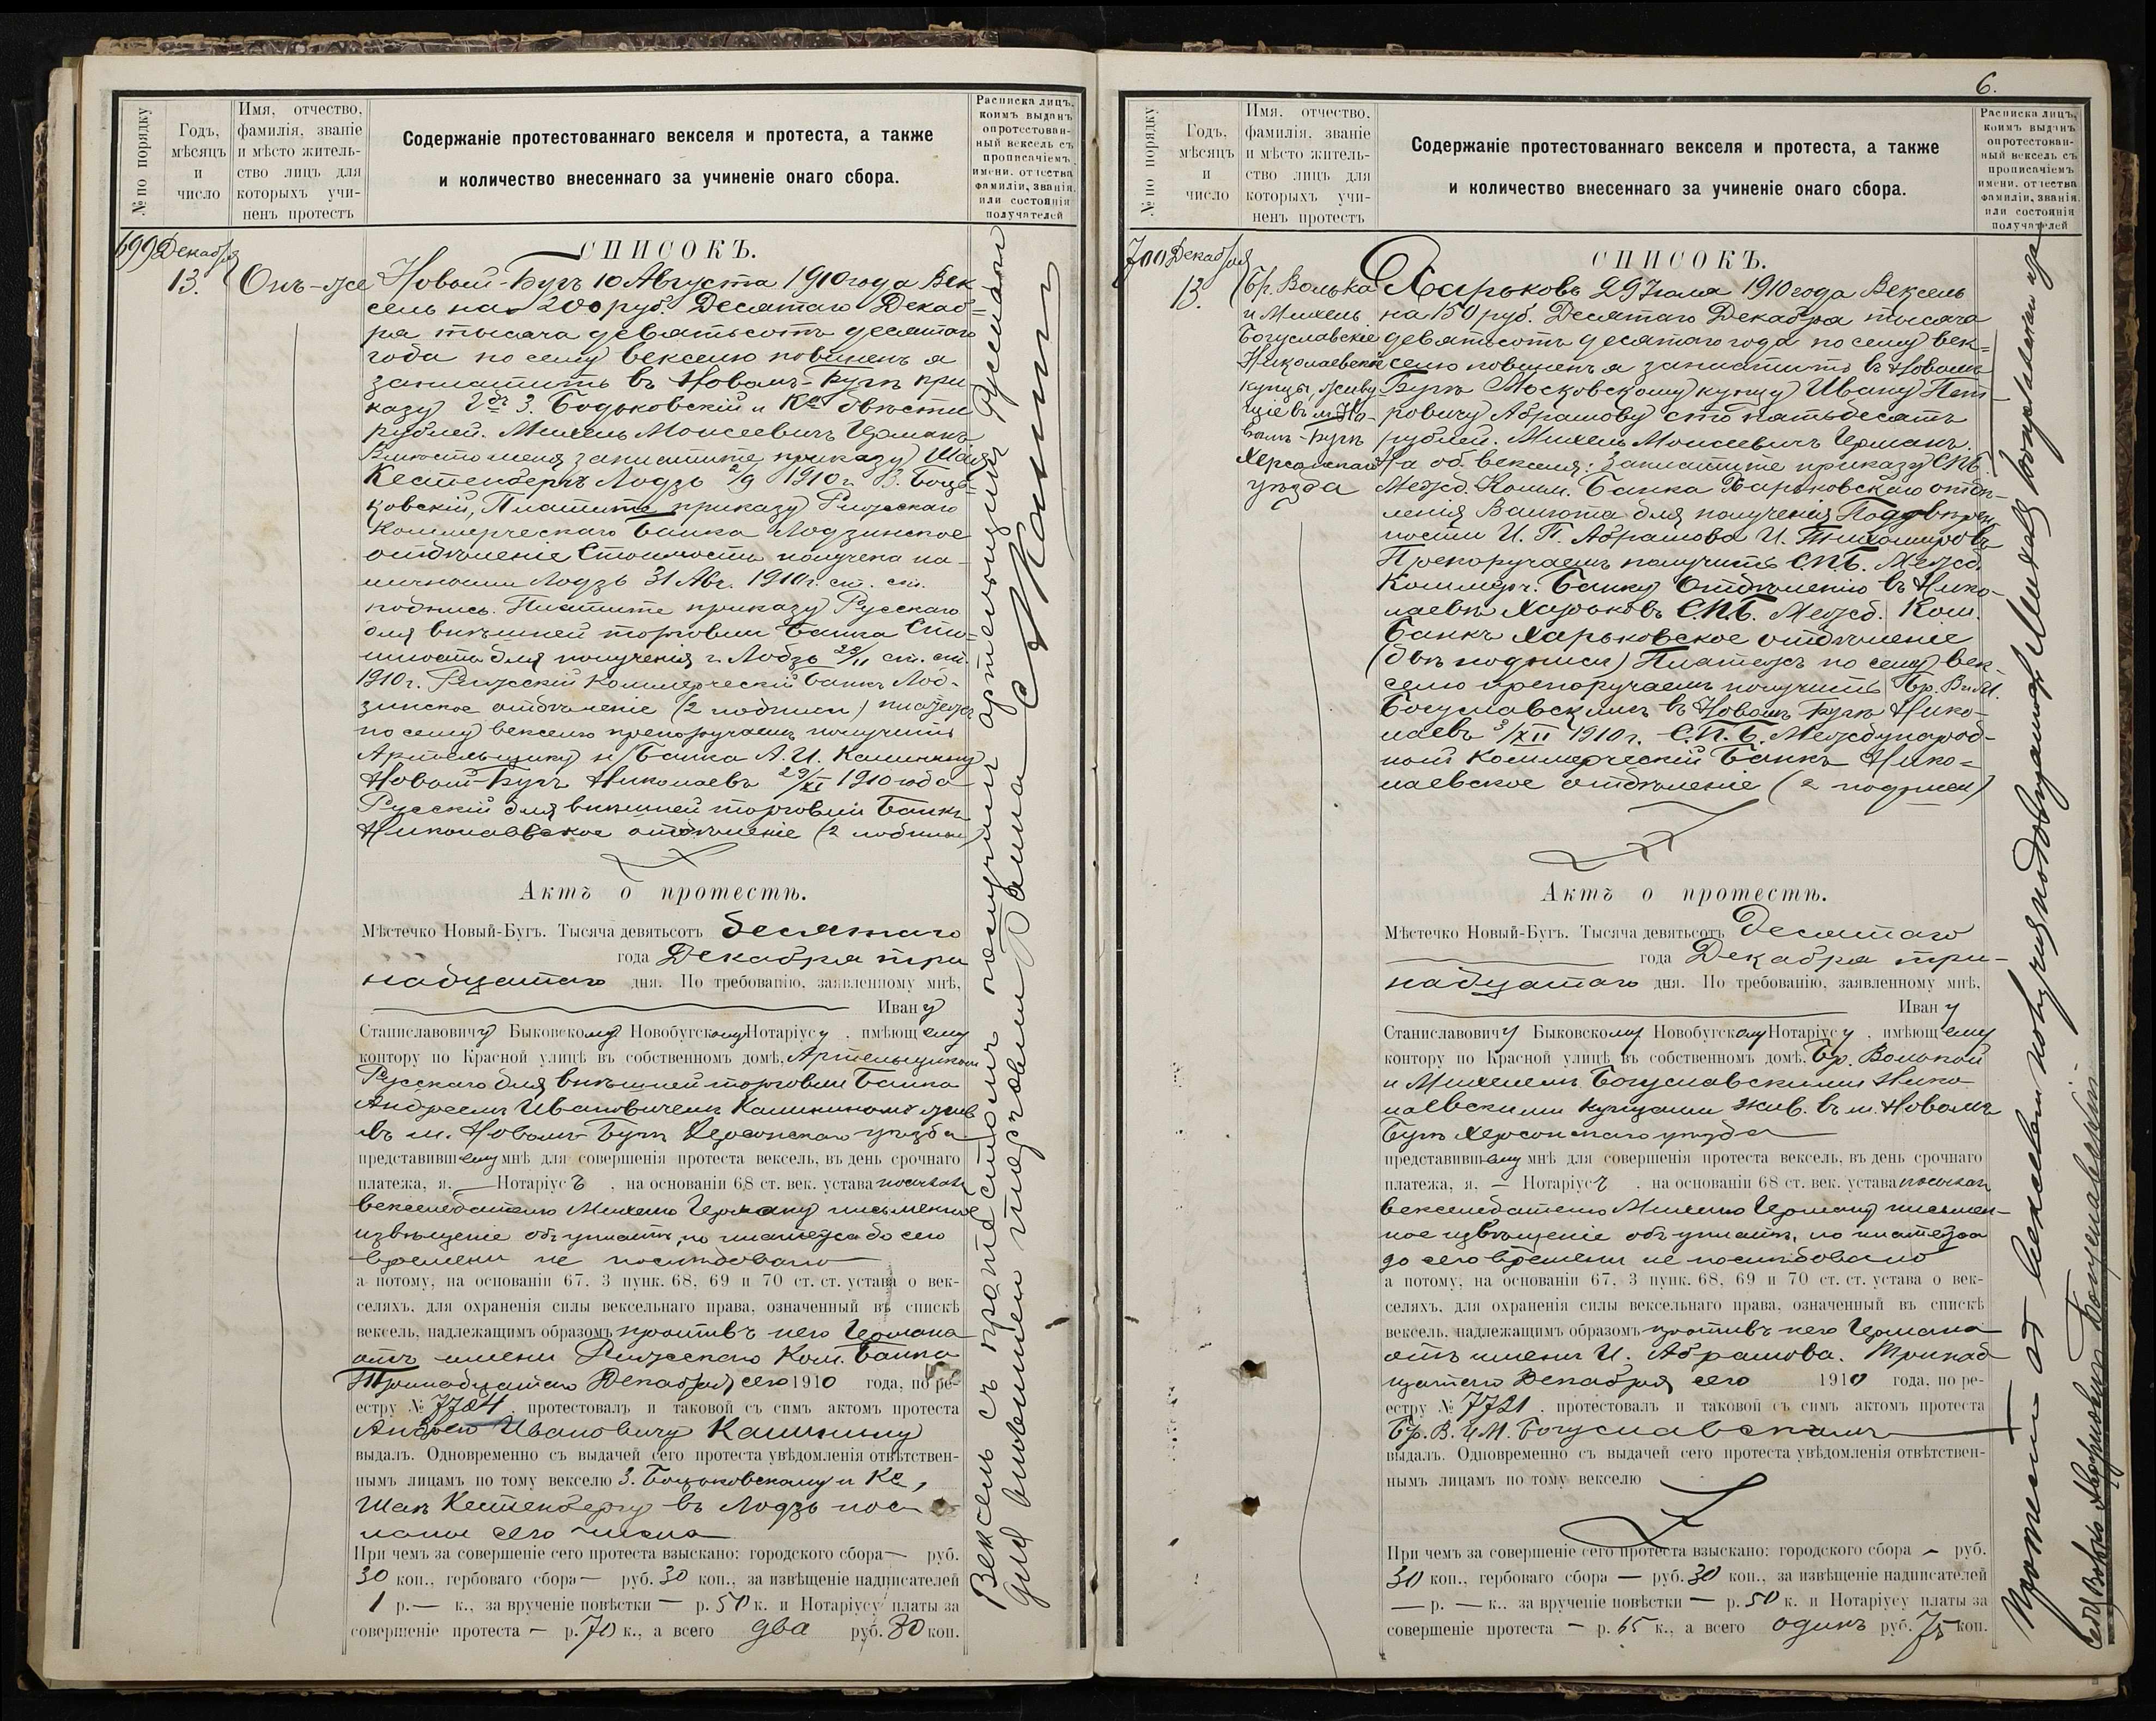 № по порядку
Годъ,
мѣсяцъ
и
число
Имя, отчество,
фамилія, званіе
и мѣсто житель-
ство лицъ для
которыхъ учи-
ненъ протестъ
Содержаніе протестованнаго векселя и протеста, а также
и количество внесеннаго за учиненіе онаго сбора.
Расписка лицъ,
коимъ выданъ
опротестован-
ный вексель съ
прописаніемъ
имени, отчества
фамиліи, званія,
или состоянія
получателей
699
Декабря
13.
Онъ-же
СПИСОКЪ.
Новый-Бугъ 10 Августа 1910 года Век
сель на 200 руб. Десятаго Декаб-
ря тысяча девятьсотъ десятаго
года по сему векселю повиненъ я
заплатить въ Новомъ-Бугѣ при
казу Г-дъ З. Бодзьковскій и Ко двѣсти
рублей. Михель Моисеевичъ Церманъ.
Вмѣсто меня заплатите приказу Шая
Кестенбергъ Лодзь 2/9 1910 г. З. Бодзь-
ковскій, Платите приказу Рижскаго
Коммерческаго Банка Лодзинское
отдѣленіе Стоимость получена на-
личными Лодзь 31 Авг. 1910 г. ст. ст.
подпись. Платите приказу Русскаго
для внѣшней торговли Банка Сто-
имость для полученія г. Лодзь 23/11 ст. ст.
1910 г. Рижскій Коммерческій Банкъ Лод-
зинское отдѣленіе (2 подписи) платежъ
по сему векселю препоручаемъ получить
Артельщику н/Банка А. И. Калинину
Новый-Бугъ Николаевъ 29/XI 1910 года
Русскій для внѣшней торговли Банкъ
Николаевское отдѣленіе (2 подписи)
Актъ о протестѣ.
Мѣстечко Новый-Бугъ. Тысяча девятьсотъ десятаго
года Декабря три
надцатаго дня. По требованію, заявленному мнѣ,
Ивану
Станиславовичу Быковскому Новобугскому Нотаріусу, имѣющему
контору по Красной улицѣ въ собственномъ домѣ, Артельщикомъ
Русскаго для внѣшней торговли Банка
Андреемъ Ивановичемъ Калининымъ жив.
въ м. Новомъ-Бугѣ Херсонскаго уѣзда
представившему мнѣ для совершенія протеста вексель, въ день срочнаго
платежа, я, — Нотаріусъ, на основаніи 68 ст. век. устава посылалъ
векселедателю Михелю Церману письменное
извѣщеніе объ уплатѣ, но платежа до сего
времени не послѣдовало
а потому, на основаніи 67, 3 пунк. 68, 69 и 70 ст. ст. устава о век-
селяхъ, для охраненія силы вексельнаго права, означенный въ спискѣ
вексель, надлежащимъ образомъ противъ него Цермана
отъ имени Рижскаго Ком. Банка
Тринадцатаго Декабря сего 1910 года, по ре-
естру № 7704, протестовалъ и таковой съ симъ актомъ протеста
Андрею Ивановичу Калинину
выдалъ. Одновременно съ выдачей сего протеста увѣдомленія отвѣтствен-
нымъ лицамъ по тому векселю З. Бодзьковскому и Ко,
Шая Кестенбергу въ Лодзь пос-
ланы сего числа
При чемъ за совершеніе сего протеста взыскано: городского сбора — руб.
30 коп., гербоваго сбора — руб. 30 коп., за извѣщеніе надписателей
1 р. — к., за врученіе повѣстки — р. 50 к. и Нотаріусу платы за
совершеніе протеста — р. 70 к., а всего два руб. 80 коп.
Вексель съ протестомъ получилъ артельщикъ Русскаго
для внѣшней торговли Банка А Калининъ
6.
№ по порядку
Годъ,
мѣсяцъ
и
число
Имя, отчество,
фамилія, званіе
и мѣсто житель-
ство лицъ для
которыхъ учи-
ненъ протестъ
Содержаніе протестованнаго векселя и протеста, а также
и количество внесеннаго за учиненіе онаго сбора.
Расписка лицъ,
коимъ выданъ
опротестован-
ный вексель съ
прописаніемъ
имени, отчества
фамиліи, званія,
или состоянія
получателей
700
Декабря
13.
Бр. Волька
и Михель
Богуславскіе
Николаевскіе
купцы, живу-
щіе въ м. Но-
вомъ-Бугѣ
Херсонскаго
уѣзда
СПИСОКЪ.
Харьковъ 29 Іюля 1910 года Вексель
на 150 руб. Десятаго Декабря тысяча
девятьсотъ десятаго года по сему век-
селю повиненъ я заплатить въ Новомъ
Бугѣ Московскому купцу Ивану Пет-
ровичу Абрамову сто пятьдесятъ
рублей. Михель Моисеевичъ Церманъ.
На об. векселя: Заплатите приказу СПБ.
Межд. Комм. Банка Харьковскаго отдѣ-
ленія Валюта для полученія По довѣрен-
ности И. П. Абрамова И. Тихомировъ
Препоручаемъ получить С.П.Б. Межд.
Коммерч. Банку Отдѣленію въ Нико-
лаевѣ Харьковъ С.П.Б. Межд. Ком.
Банкъ Харьковское отдѣленіе
(двѣ подписи) Платежъ по сему век-
селю препоручаемъ получить Бр. В. и М.
Богуславскимъ въ Новомъ Бугѣ Нико-
лаевъ 3/XII 1910 г. С.П.Б. Международ-
ный Коммерческій Банкъ Нико-
лаевское отдѣленіе (2 подписи)
Актъ о протестѣ.
Мѣстечко Новый-Бугъ. Тысяча девятьсотъ Десятаго
года Декабря три-
надцатаго дня. По требованію, заявленному мнѣ,
Ивану
Станиславовичу Быковскому Новобугскому Нотаріусу, имѣющему
контору по Красной улицѣ въ собственномъ домѣ, Бр. Волькой
и Михелемъ Богуславскими Нико-
лаевскими купцами жив. въ м. Новомъ
Бугѣ Херсонскаго уѣзда
представившему мнѣ для совершенія протеста вексель, въ день срочнаго
платежа, я, — Нотаріусъ, на основаніи 68 ст. век. устава посылалъ
векселедателю Михелю Церману письмен-
ное извѣщеніе объ уплатѣ, но платежа
до сего времени не послѣдовало
а потому, на основаніи 67, 3 пунк. 68, 69 и 70 ст. ст. устава о век-
селяхъ, для охраненія силы вексельнаго права, означенный въ спискѣ
вексель, надлежащимъ образомъ противъ него Цермана
отъ имени И. Абрамова. Тринад-
цатаго Декабря сего 1910 года, по ре-
естру № 7721, протестовалъ и таковой съ симъ актомъ протеста
Бр. В. и М. Богуславскимъ
выдалъ. Одновременно съ выдачей сего протеста увѣдомленія отвѣтствен-
нымъ лицамъ по тому векселю
При чемъ за совершеніе сего протеста взыскано: городского сбора — руб.
30 коп., гербоваго сбора — руб. 30 коп., за извѣщеніе надписателей
— р. — к., за врученіе повѣстки — р. 50 к. и Нотаріусу платы за
совершеніе протеста — р. 65 к., а всего одинъ руб. 75 коп.
Протестъ от векселем получил
Богуславский